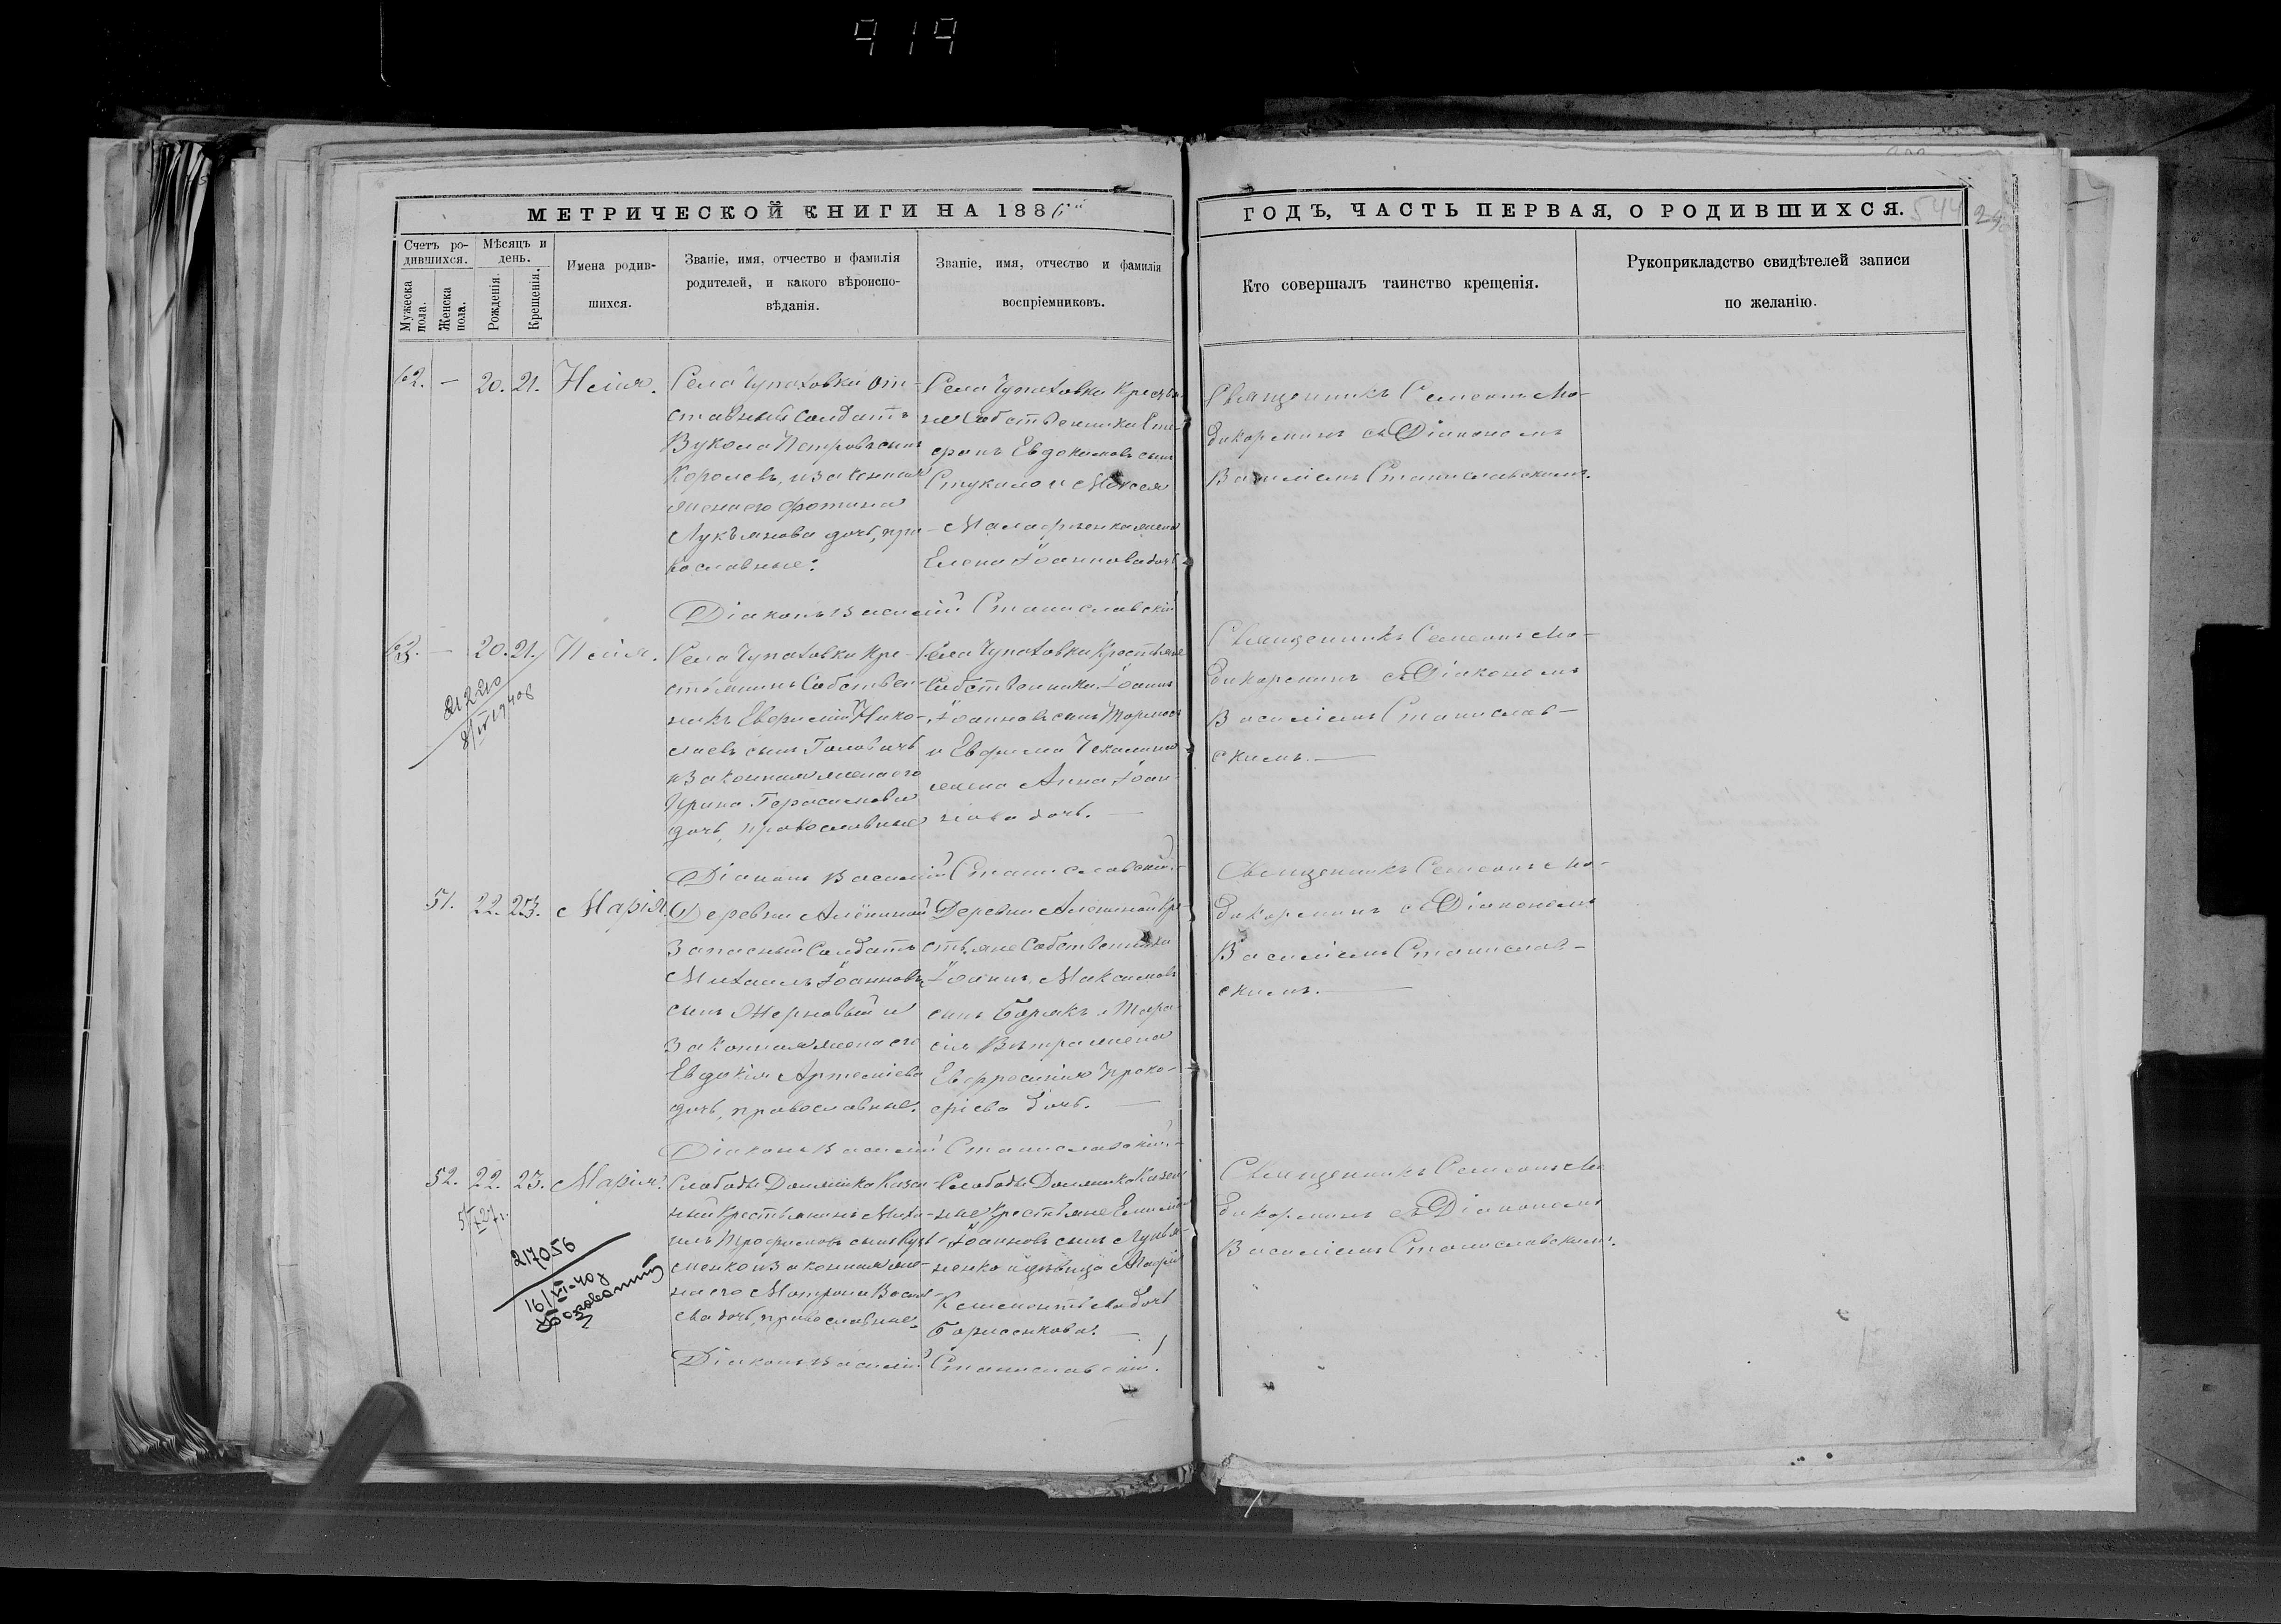 919
МЕТРИЧЕСКОЙ КНИГИ НА 1886й
ГОДЪ, ЧАСТЬ ПЕРВАЯ, О РОДИВШИХСЯ.
544
Счетъ ро-
дившихся.
Мужеска
пола.
Женска
пола.
Мѣсяцъ и
день.
Рожденія.
Крещенія.
Имена родив-
шихся.
Званіе, имя, отчество и фамилія
родителей, и какого вѣроиспо-
вѣданія.
Званіе, имя, отчество и фамилія
воспріемниковъ.
Кто совершалъ таинство крещенія.
Рукоприкладство свидѣтелей записи
по желанію.
62. — 20. 21. Илія.
Села Чупаховки от-
ставный Солдатъ
Вукола Петровъ сынъ
Королевъ, и законная
жена его Фотина
Лукьянова дочь, пра-
вославные:
Села Чупаховки Крестья-
не Собственники
Евдокимовъ сынъ
Стукало и Моисея
жена
Елена Іоаннова дочь.
Священникъ Симеонъ
съ Діакономъ
Василіемъ Станиславскимъ.
Діаконъ Василій Станиславскій
63. — 20. 21. Илія.
21220
8/IV 1940г
Села Чупаховки Кре-
стьянинъ Собствен-
никъ Евфимій Нико-
лаевъ сынъ Головачъ
и законная жена его
Ирина Герасимова
дочь, православные
Села Чупаховки Крестьяне
Собственники Іоаннъ
Іоанновъ сынъ
и Евфима
жена Анна Іоан-
нова дочь. —
Священникъ Симеонъ
съ Діакономъ
Василіемъ Станислав-
скимъ. —
Діаконъ Василій Станиславскій.
51. 22. 23. Марія.
Деревни Алёниной
Запасный Солдатъ
Михаилъ Іоанновъ
сынъ Жерновый и
законная жена его
Евдокія Артеміева
дочь, православные.
Деревни Алениной Кре-
стьяне Собственники
Іоаннъ Максимовъ
сынъ и Тара-
сія Вѣтра жена
Евфросинія Проко-
фіева дочь. —
Священникъ Симеонъ
съ Діакономъ
Василіемъ Станислав-
скимъ. —
Діаконъ Василій Станиславскій.
52. 22. 23. Марія.
217056
16/VI-40г
Слободы Должика Казен-
ный Крестьянинъ Миха-
илъ Трофимовъ сынъ Кузь-
менко и законная же-
на его Матрона Василь-
ева дочь, православные.
Слободы Должика Казен-
ные Крестьяне
Іоанновъ сынъ
и дѣвица Марія
Климентьева дочь
Борисенкова. —
Священникъ Симеонъ
съ Діакономъ
Василіемъ Станиславскимъ.
Діаконъ Василій Станиславскій.